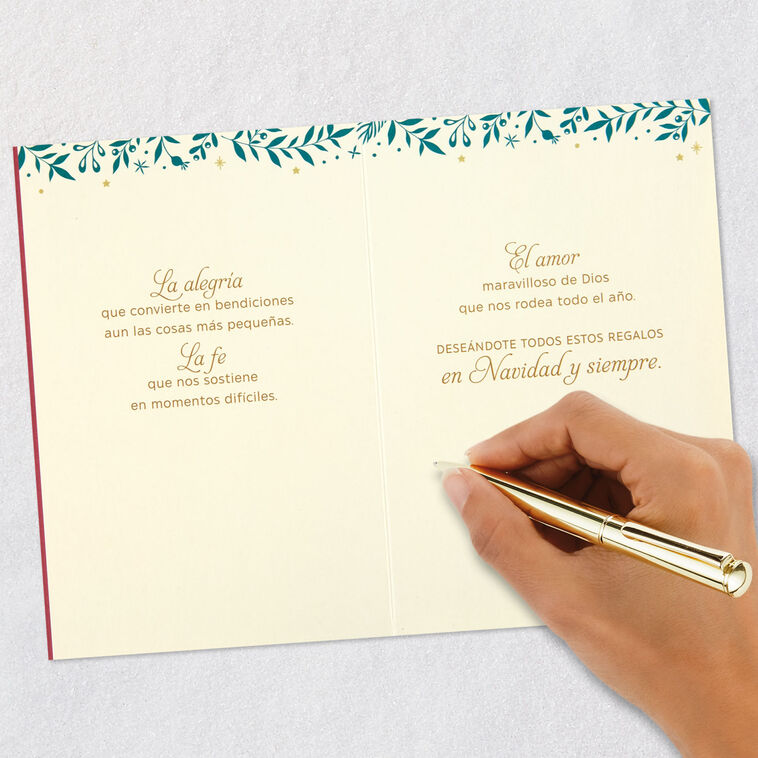 La alegría
que convierte en bendiciones
aun las cosas más pequeñas.
La fe
que nos sostiene
en momentos difíciles.
El amor
maravilloso de Dios
que nos rodea todo el año.
DESEÁNDOTE TODOS ESTOS REGALOS
en Navidad y siempre.